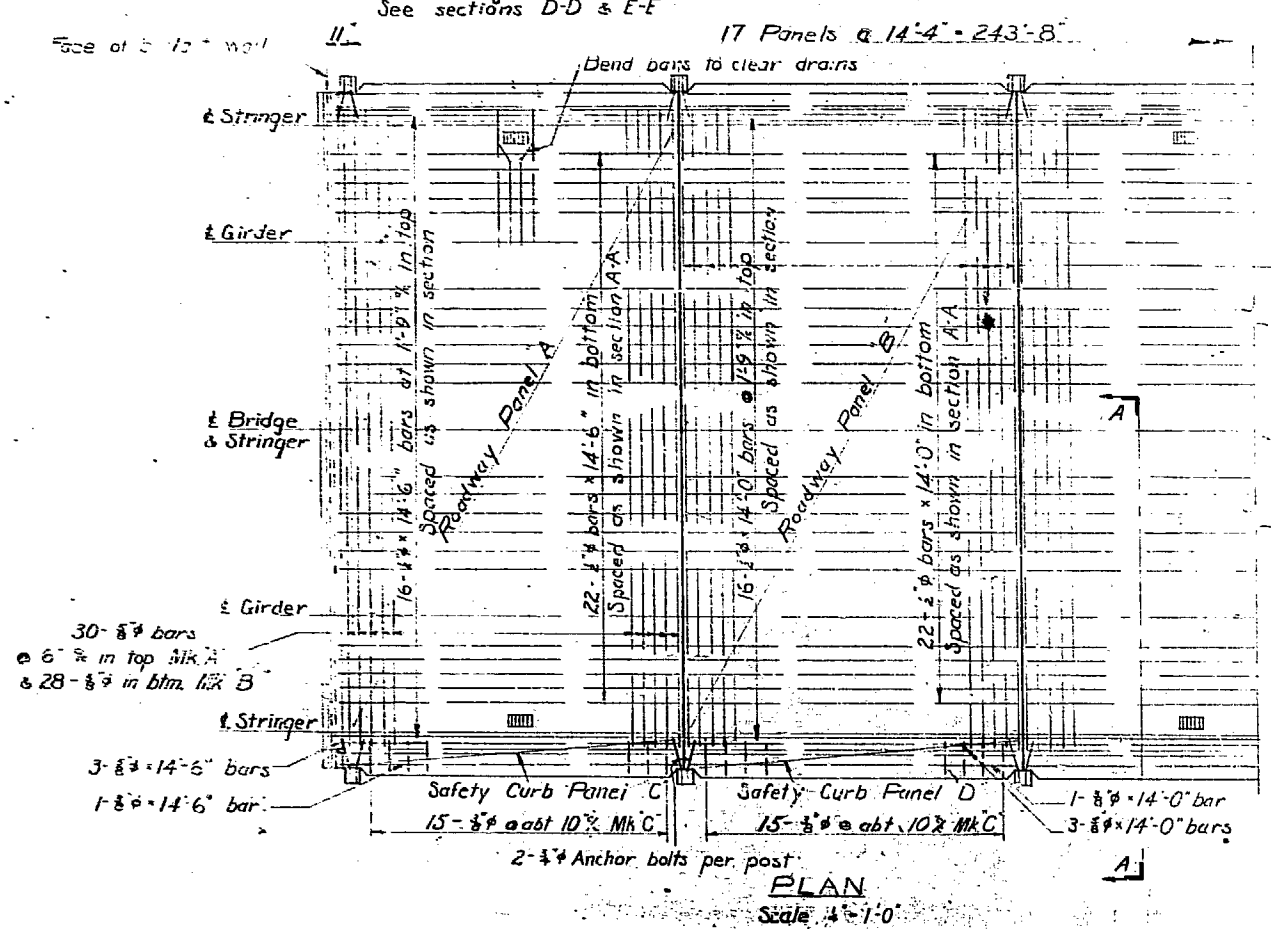 See sections D-D & E-E
Face of wall
11"
17 Panels @ 14'-4" = 243'-8"
Bend bars to clear drains
℄ Stringer
℄ Girder
℄ Bridge
& Stringer
℄ Girder
℄ Stringer
16-½"⌀ × 14'-6" bars at 1'-9" % in top
Spaced as shown in section
Roadway Panel A
22-½"⌀ bars × 14'-6" in bottom
Spaced as shown in section A-A
16-½"⌀ × 14'-0" bars @ 1'-9" % in top
Spaced as shown in section
Roadway Panel "B"
22-½"⌀ bars × 14'-0" in bottom
Spaced as shown in section A-A
A
30-⅝"⌀ bars
@ 6" % in top Mk "A"
& 28-⅝"⌀ in btm. Mk "B"
3-⅝"⌀ × 14'-6" bars
1-⅜"⌀ × 14'-6" bar
Safety Curb Panel C
Safety Curb Panel D
1-⅜"⌀ × 14'-0" bar
3-⅝"⌀ × 14'-0" bars
15-⅜"⌀ @ abt 10" % Mk "C"
15-⅜"⌀ @ abt. 10" % Mk "C"
2-¾"⌀ Anchor bolts per post
A
PLAN
Scale ¼" = 1'-0"